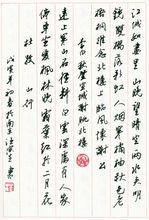 江城如畫里山晚望晴空兩水夾明
鏡雙橋落彩虹人烟寒橘柚秋色老
梧桐誰念北樓上臨風懷謝公
李白秋登宣城謝朓北樓
遠上寒山石徑斜白雲深處有人家
停車坐愛楓林晚霜葉紅於二月花
杜牧 山行